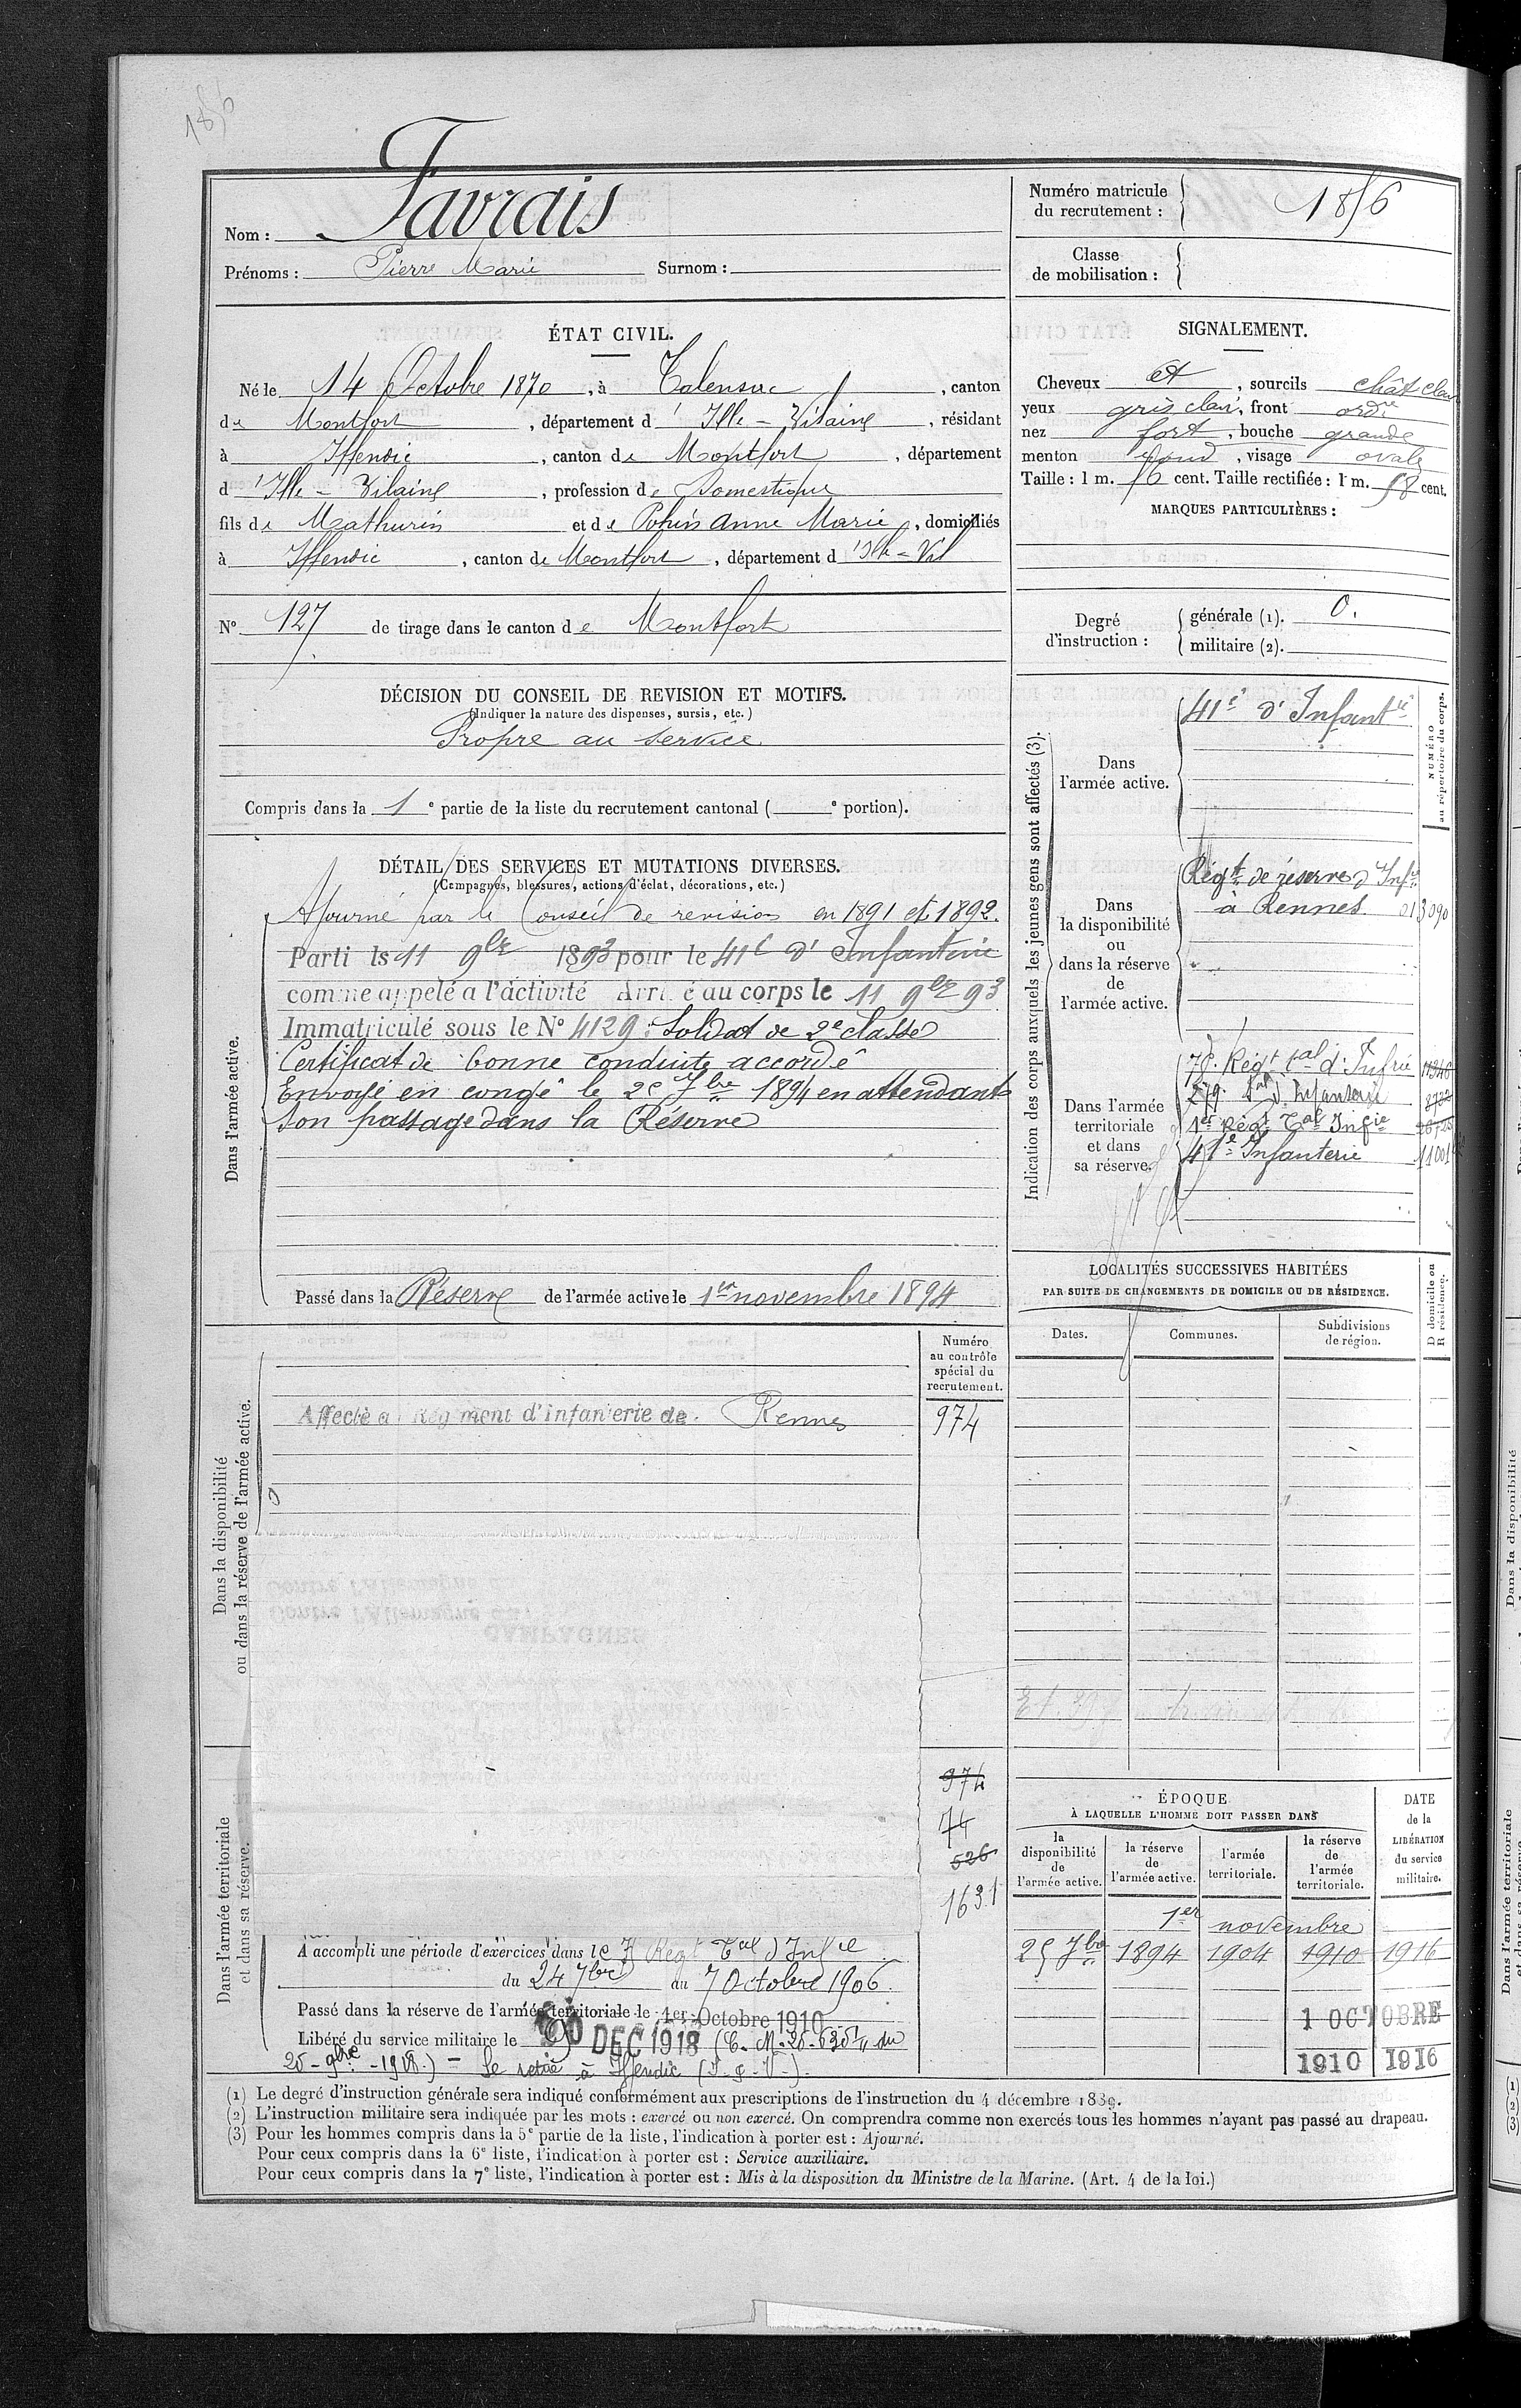 1856
Nom : Favrais
Prénoms : Pierre Marie Surnom :
Numéro matricule du recrutement : 1856
Classe de mobilisation :
ÉTAT CIVIL.
Né le 14 Octobre 1870, à Talensac, canton
de Montfort, département d'Ille-Vilaine, résidant
à Iffendic, canton de Montfort, département
d'Ille-Vilaine, profession de Domestique
fils de Mathurin et de Pohin Anne Marie, domiciliés
à Iffendic, canton de Montfort, département d'Ille-Vil
N° 127 de tirage dans le canton de Montfort
SIGNALEMENT.
Cheveux et, sourcils chât clair
yeux gris clair, front ordre
nez fort, bouche grande
menton rond, visage ovale
Taille : 1 m. 56 cent. Taille rectifiée : 1 m. 58 cent.
MARQUES PARTICULIÈRES :
Degré d'instruction : générale (1). 0.
militaire (2).
DÉCISION DU CONSEIL DE REVISION ET MOTIFS.
(Indiquer la nature des dispenses, sursis, etc.)
Propre au service
Compris dans la 1e partie de la liste du recrutement cantonal ( e portion).
DÉTAIL DES SERVICES ET MUTATIONS DIVERSES.
(Campagnes, blessures, actions d'éclat, décorations, etc.)
Dans l'armée active.
Ajourné par le Conseil de revision en 1891 et 1892.
Parti le 11 9bre 1893 pour le 41e d'Infanterie
comme appelé a l'activité Arrivé au corps le 11 9bre 93
Immatriculé sous le N° 4129. Soldat de 2e classe
Certificat de bonne conduite accordé
Envoyé en congé le 25 7bre 1894 en attendant
son passage dans la Réserve
Passé dans la Réserve de l'armée active le 1er novembre 1894
Indication des corps auxquels les jeunes gens sont affectés (3).
NUMÉRO au répertoire du corps.
Dans l'armée active.
41e d'Infantie
Dans la disponibilité ou dans la réserve de l'armée active.
Régt de réserve d'Infie
à Rennes 013090
Dans l'armée territoriale et dans sa réserve.
Régt tal d'Infrie
tal d'Infanterie
1er Régt Tal Infie
41e Infanterie
LOCALITÉS SUCCESSIVES HABITÉES
PAR SUITE DE CHANGEMENTS DE DOMICILE OU DE RÉSIDENCE.
Dates. Communes. Subdivisions de région.
D domicile ou R résidence.
Dans la disponibilité ou dans la réserve de l'armée active.
Numéro au contrôle spécial du recrutement.
Affecté au Régiment d'infanterie de Rennes 974
Dans l'armée territoriale et dans sa réserve.
974
74
526
1631
A accompli une période d'exercices dans le Régt Tal d'Infie
du 24 7bre au 7 Octobre 1906
Passé dans la réserve de l'armée territoriale le 1er Octobre 1910
Libéré du service militaire le DEC 1918
Se retire à Iffendic (I-&-V-).
ÉPOQUE
À LAQUELLE L'HOMME DOIT PASSER DANS
DATE de la LIBÉRATION du service militaire.
la disponibilité de l'armée active.
la réserve de l'armée active.
l'armée territoriale.
la réserve de l'armée territoriale.
1er novembre
25 7bre 1894 1904 1910 1916
1 OCTOBRE
1910 1916
(1) Le degré d'instruction générale sera indiqué conformément aux prescriptions de l'instruction du 4 décembre 1889.
(2) L'instruction militaire sera indiquée par les mots : exercé ou non exercé. On comprendra comme non exercés tous les hommes n'ayant pas passé au drapeau.
(3) Pour les hommes compris dans la 5e partie de la liste, l'indication à porter est : Ajourné.
Pour ceux compris dans la 6e liste, l'indication à porter est : Service auxiliaire.
Pour ceux compris dans la 7e liste, l'indication à porter est : Mis à la disposition du Ministre de la Marine. (Art. 4 de la loi.)